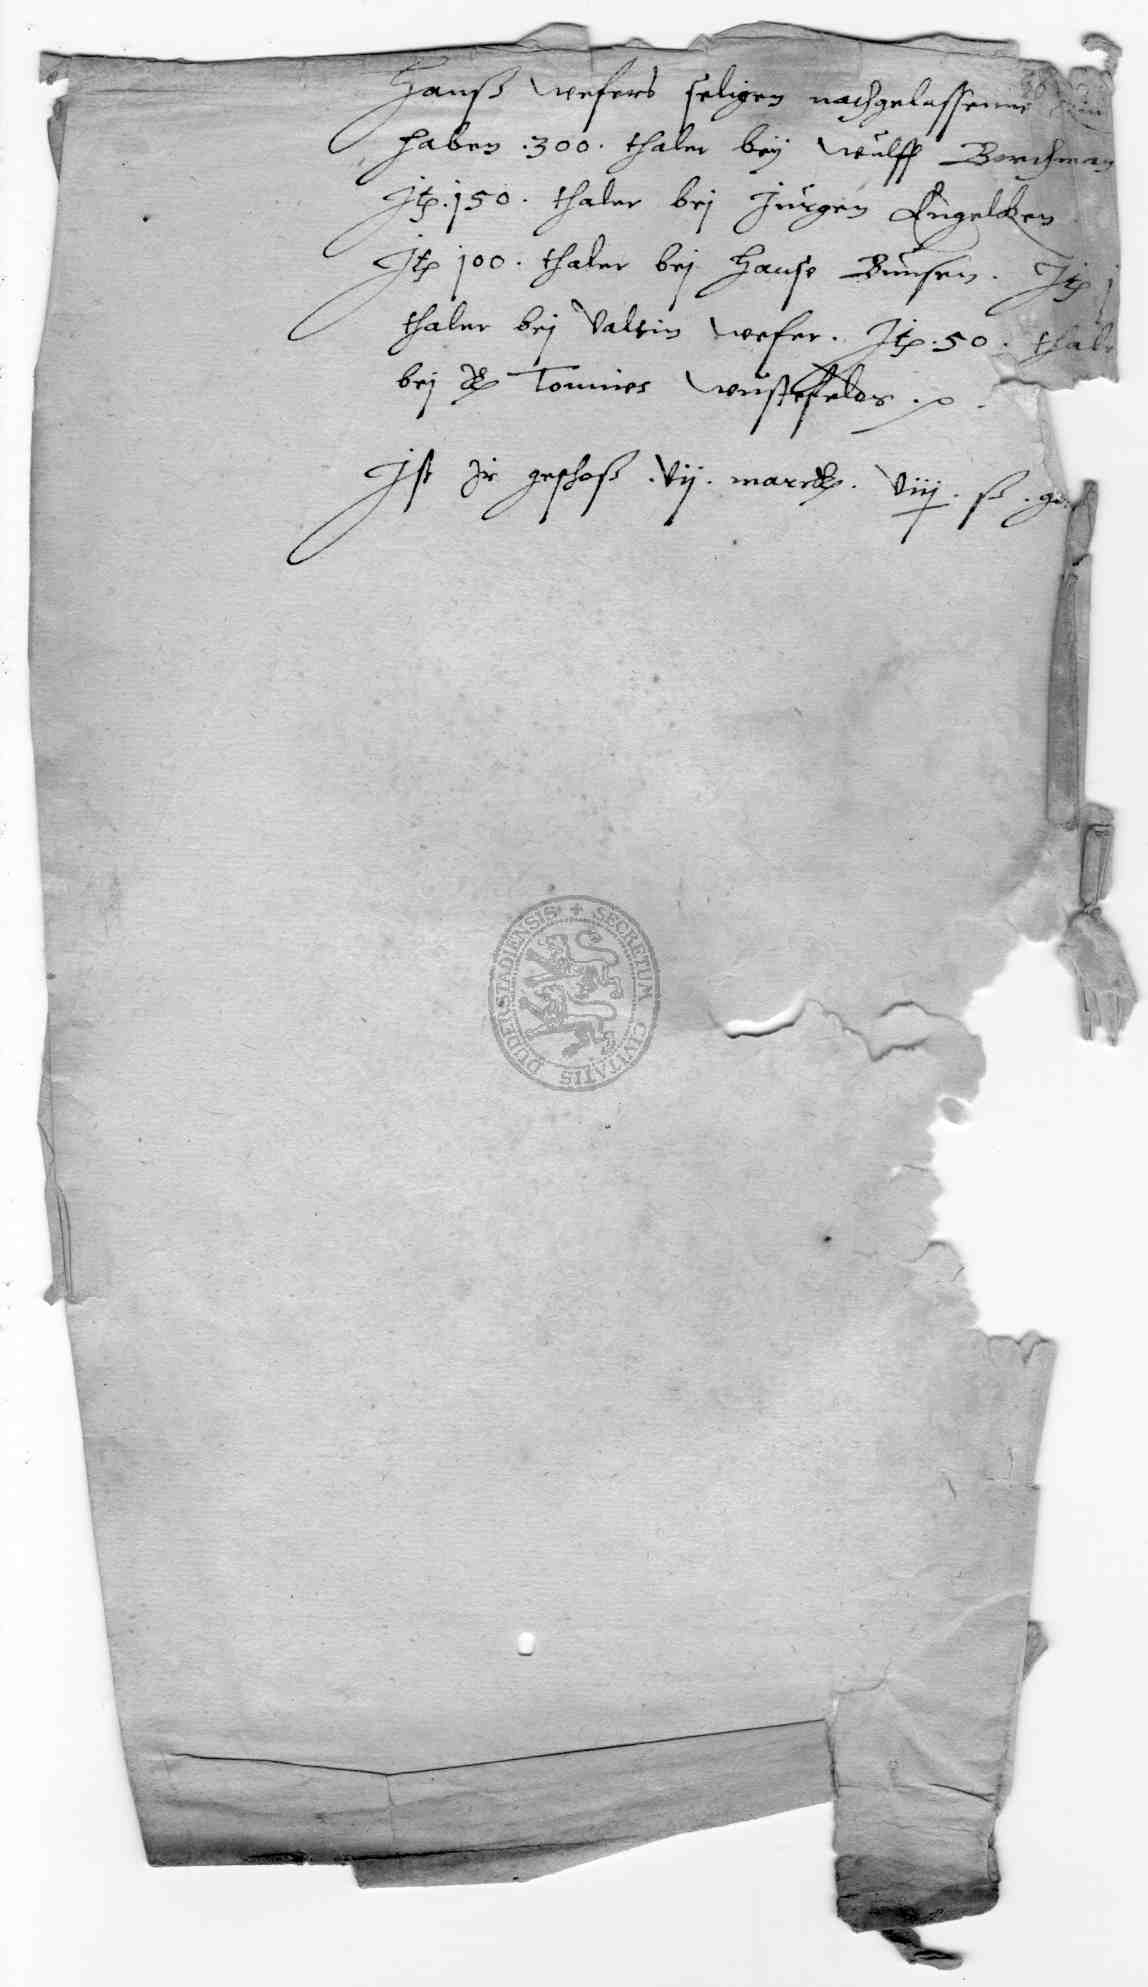 Hanß Wefers seligen nachgelassenne
haben .300. thaler beÿ Wulff Borchman
Jtp. 150. thaler bej Jurgen Engelcken
Jtp 100. thaler bej Hanse Bunsen. Jtp
thaler bej Valtin Wefer. Jtp. 50. thale
bej Tonnies Wustefeldt.
Jst Jr geschoß .vij. marck. viij. ß.
SECRETUM CIVITATIS DUDERSTADIENSIS +